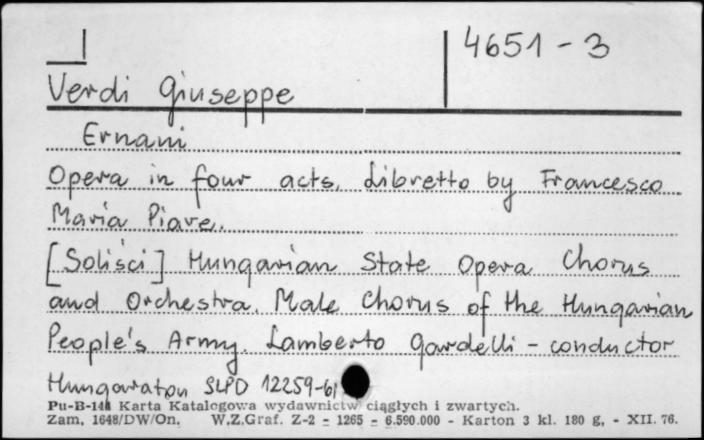 4651-3
Verdi Giuseppe
Ernani
Opera in four acts. Libretto by Francesco
Maria Piave.
[Soliści] Hungarian State Opera Chorus
and Orchestra. Male Chorus of the Hungarian
People's Army. Lamberto Gardelli - conductor
Hungaroton SLPD 12259-61
Pu-B-144 Karta Katalogowa wydawnictw ciągłych i zwartych.
Zam, 1648/DW/On. W.Z.Graf. Z-2 - 1265 - 6.590.000 - Karton 3 kl. 180 g, - XII. 76.